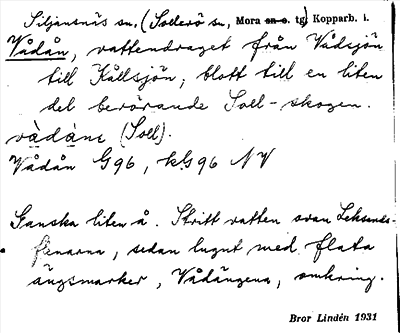 Siljansnäs sn, (Sollerö sn, Mora sn o. tg) Kopparb. l.
Vådån, vattendraget från Vådsjön
till Kållsjön; blott till en liten
del berörande Soll-skogen.
vàdánɛ (Soll).
Vådån G96, k.G96 NV
Ganska liten å. Stritt vatten ovan Leksands-
fienarna, sedan lugnt med flata
ängsmarker, Vådängena, omkring.
Bror Lindén 1931